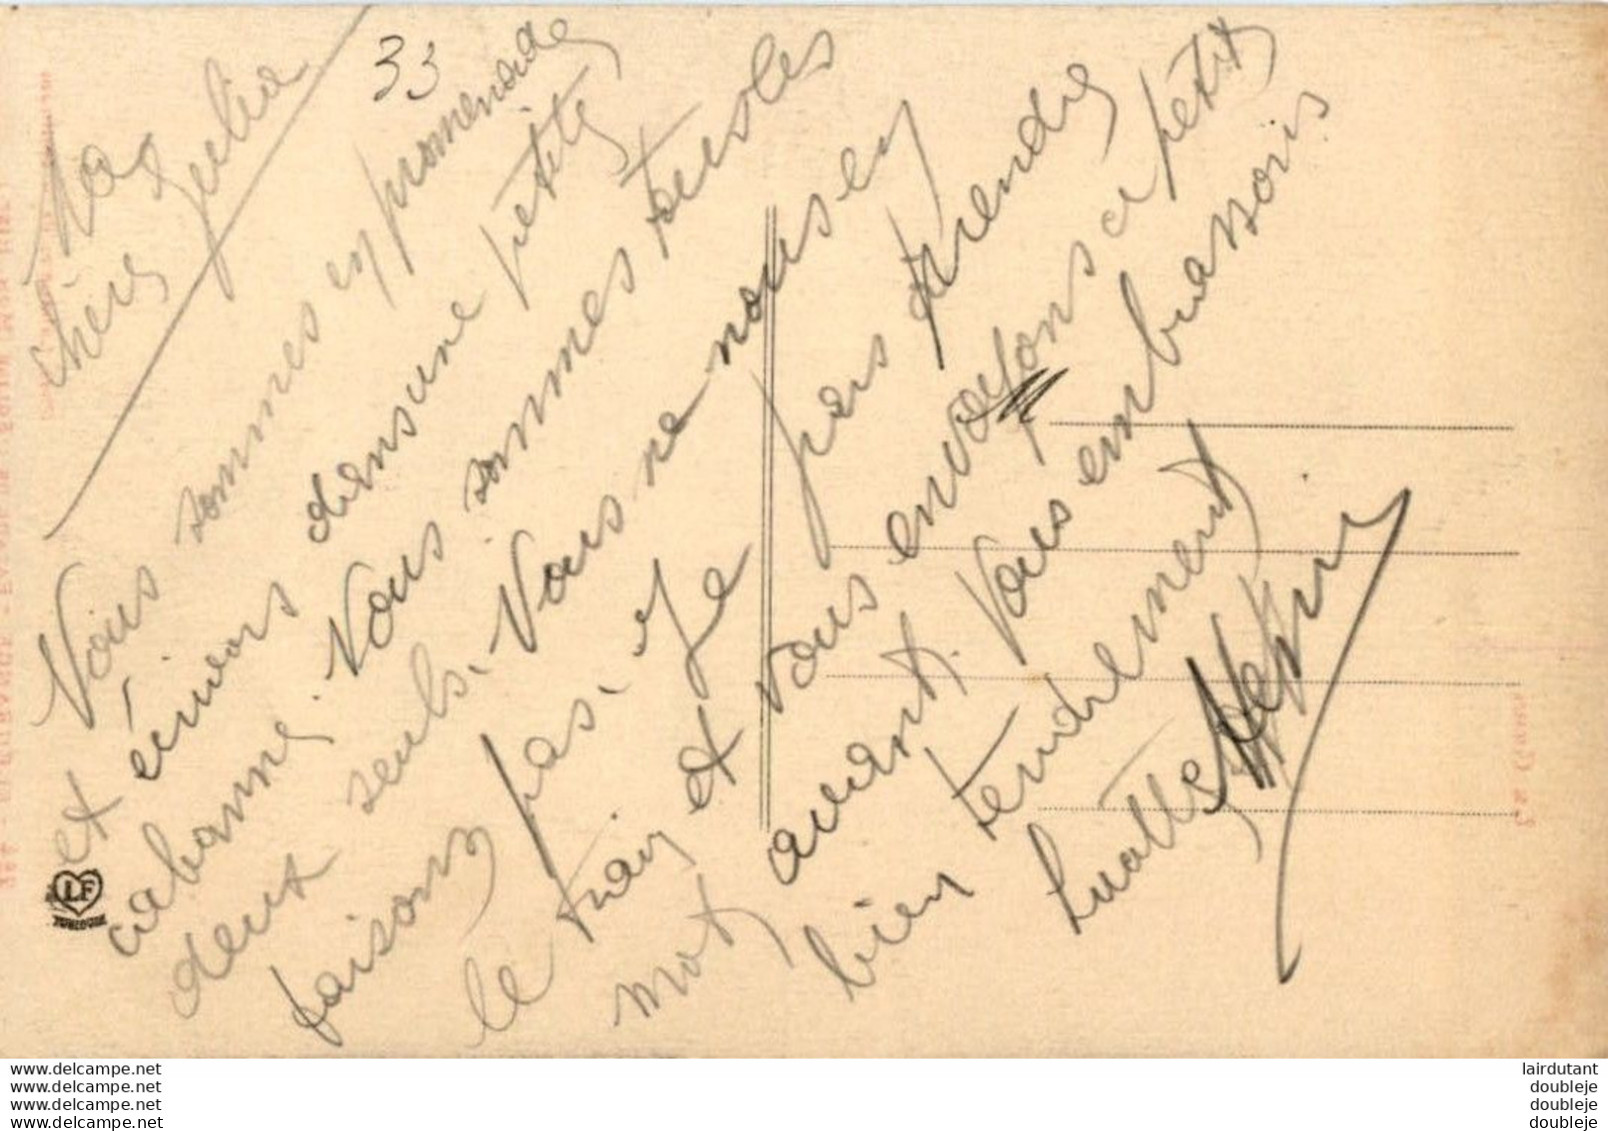 33
Ma
chère Julia
Nous sommes en promenade
et écrivons dans une petite
cabanne. Nous sommes toutes les
deux seules. Nous ne nous en
faisons pas. Je vais prendre
le train et vous envoyons ce petit
mot avant. Vous embrassons
bien tendrement
LF
www.delcampe.net
www.delcampe.net
www.delcampe.net
www.delcampe.net
lairdutant
doubleje
doubleje
doubleje